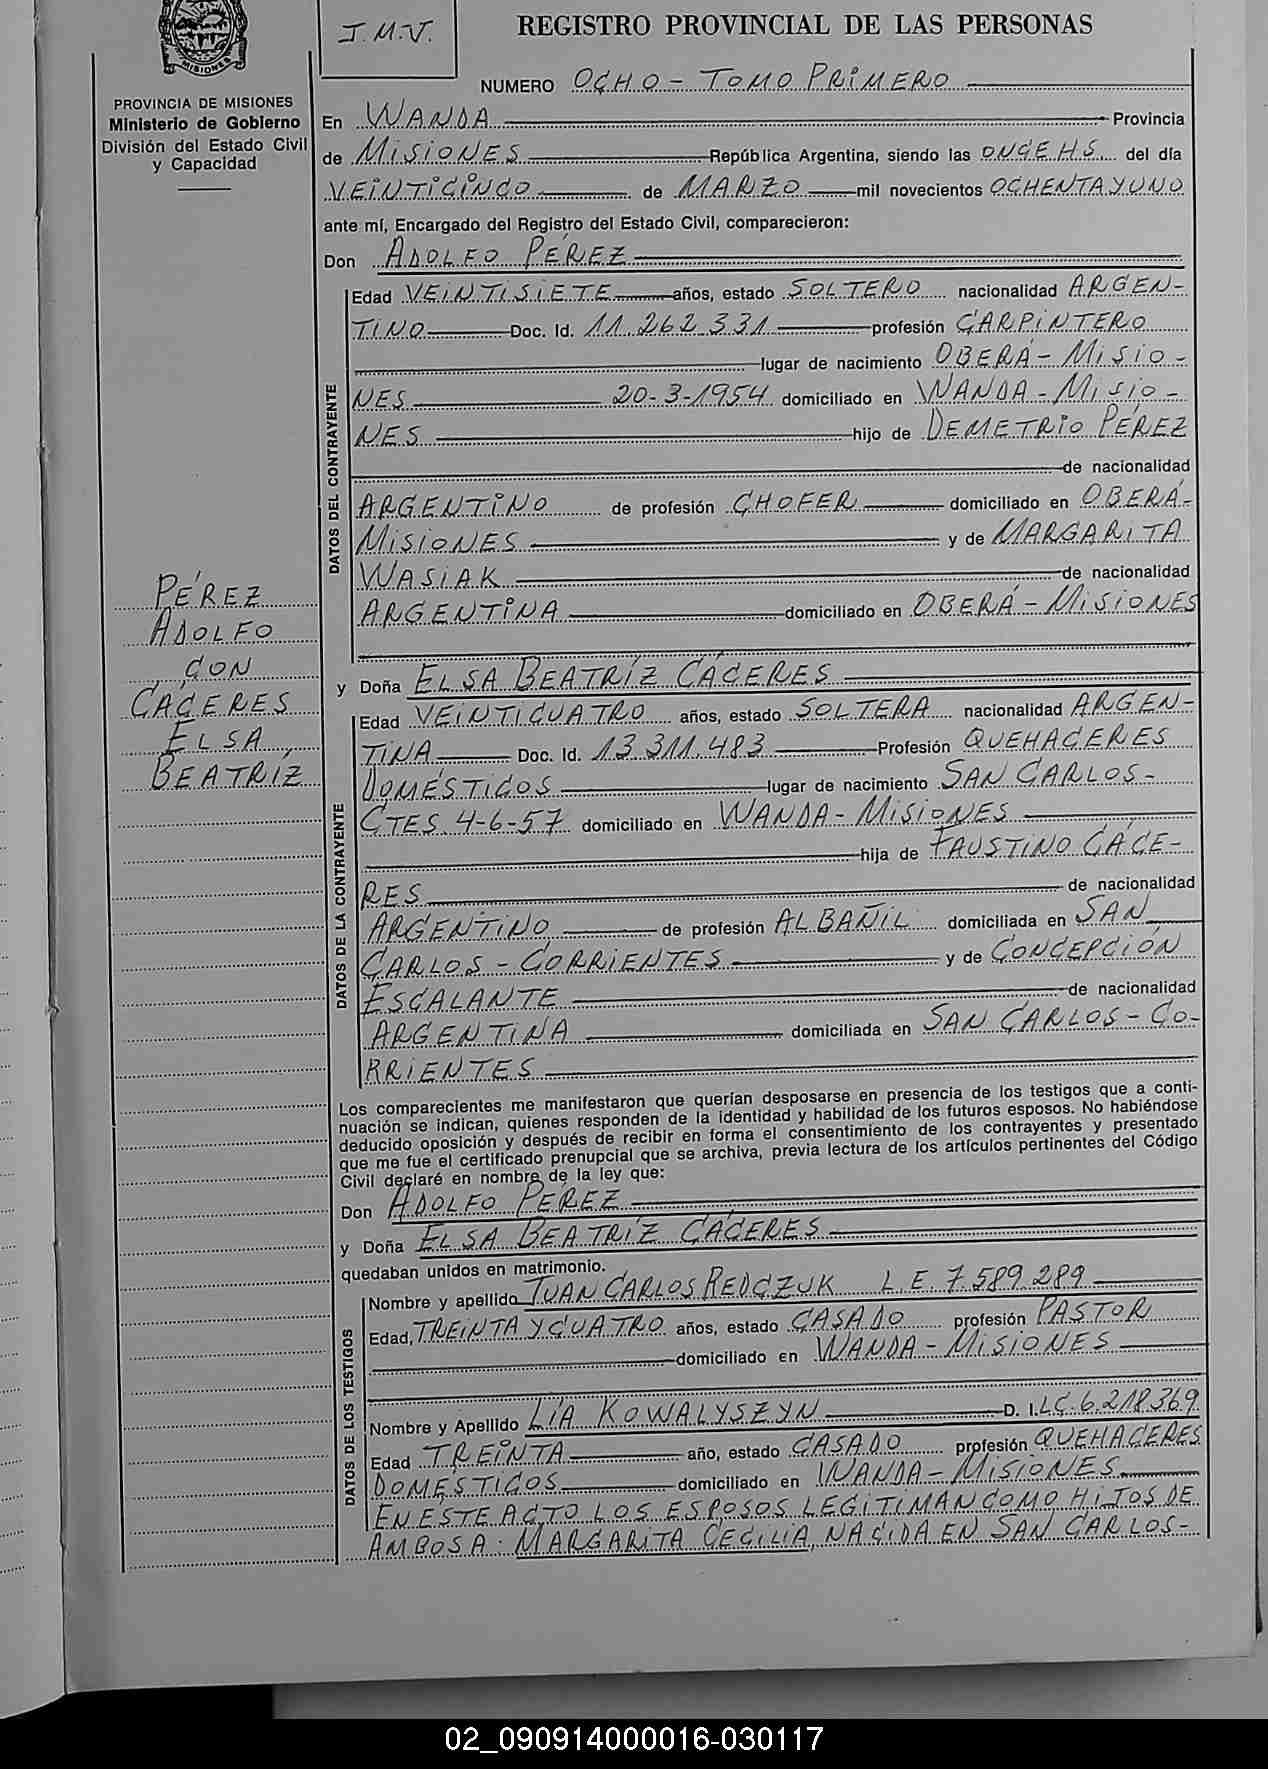 MISIONES
J.M.V.
REGISTRO PROVINCIAL DE LAS PERSONAS
NUMERO OCHO - TOMO PRIMERO
PROVINCIA DE MISIONES
Ministerio de Gobierno
División del Estado Civil
y Capacidad
En WANDA Provincia
de MISIONES República Argentina, siendo las ONCE HS. del día
VEINTICINCO de MARZO mil novecientos OCHENTA Y UNO
ante mí, Encargado del Registro del Estado Civil, comparecieron:
Don ADOLFO PÉREZ
DATOS DEL CONTRAYENTE
Edad VEINTISIETE años, estado SOLTERO nacionalidad ARGEN-
TINO Doc. Id. 11.262.331 profesión CARPINTERO
lugar de nacimiento OBERÁ - MISIO-
NES 20-3-1954 domiciliado en WANDA - MISIO-
NES hijo de DEMETRIO PÉREZ
de nacionalidad
ARGENTINO de profesión CHOFER domiciliado en OBERÁ-
MISIONES y de MARGARITA
WASIAK de nacionalidad
ARGENTINA domiciliado en OBERÁ - MISIONES
PÉREZ
ADOLFO
CON
CÁCERES
ELSA
BEATRÍZ
y Doña ELSA BEATRÍZ CÁCERES
DATOS DE LA CONTRAYENTE
Edad VEINTICUATRO años, estado SOLTERA nacionalidad ARGEN-
TINA Doc. Id. 13.311.483 Profesión QUEHACERES
DOMÉSTICOS lugar de nacimiento SAN CARLOS-
CTES. 4-6-57 domiciliado en WANDA - MISIONES
hija de FAUSTINO CÁCE-
RES de nacionalidad
ARGENTINO de profesión ALBAÑIL domiciliada en SAN
CARLOS - CORRIENTES y de CONCEPCIÓN
ESCALANTE de nacionalidad
ARGENTINA domiciliada en SAN CARLOS - CO-
RRIENTES
Los comparecientes me manifestaron que querían desposarse en presencia de los testigos que a conti-
nuación se indican, quienes responden de la identidad y habilidad de los futuros esposos. No habiéndose
deducido oposición y después de recibir en forma el consentimiento de los contrayentes y presentado
que me fue el certificado prenupcial que se archiva, previa lectura de los artículos pertinentes del Código
Civil declaré en nombre de la ley que:
Don ADOLFO PÉREZ
y Doña ELSA BEATRÍZ CÁCERES
quedaban unidos en matrimonio.
DATOS DE LOS TESTIGOS
Nombre y apellido JUAN CARLOS REDCZUK L.E. 7.589.289
Edad, TREINTA Y CUATRO años, estado CASADO profesión PASTOR
domiciliado en WANDA - MISIONES
Nombre y Apellido LÍA KOWALYSZYN D. I. LC.6.218.369
Edad TREINTA año, estado CASADO profesión QUEHACERES
DOMÉSTICOS domiciliado en WANDA - MISIONES
EN ESTE ACTO LOS ESPOSOS LEGITIMAN COMO HIJOS DE
AMBOS A: MARGARITA CECILIA, NACIDA EN SAN CARLOS-
02_090914000016-030117